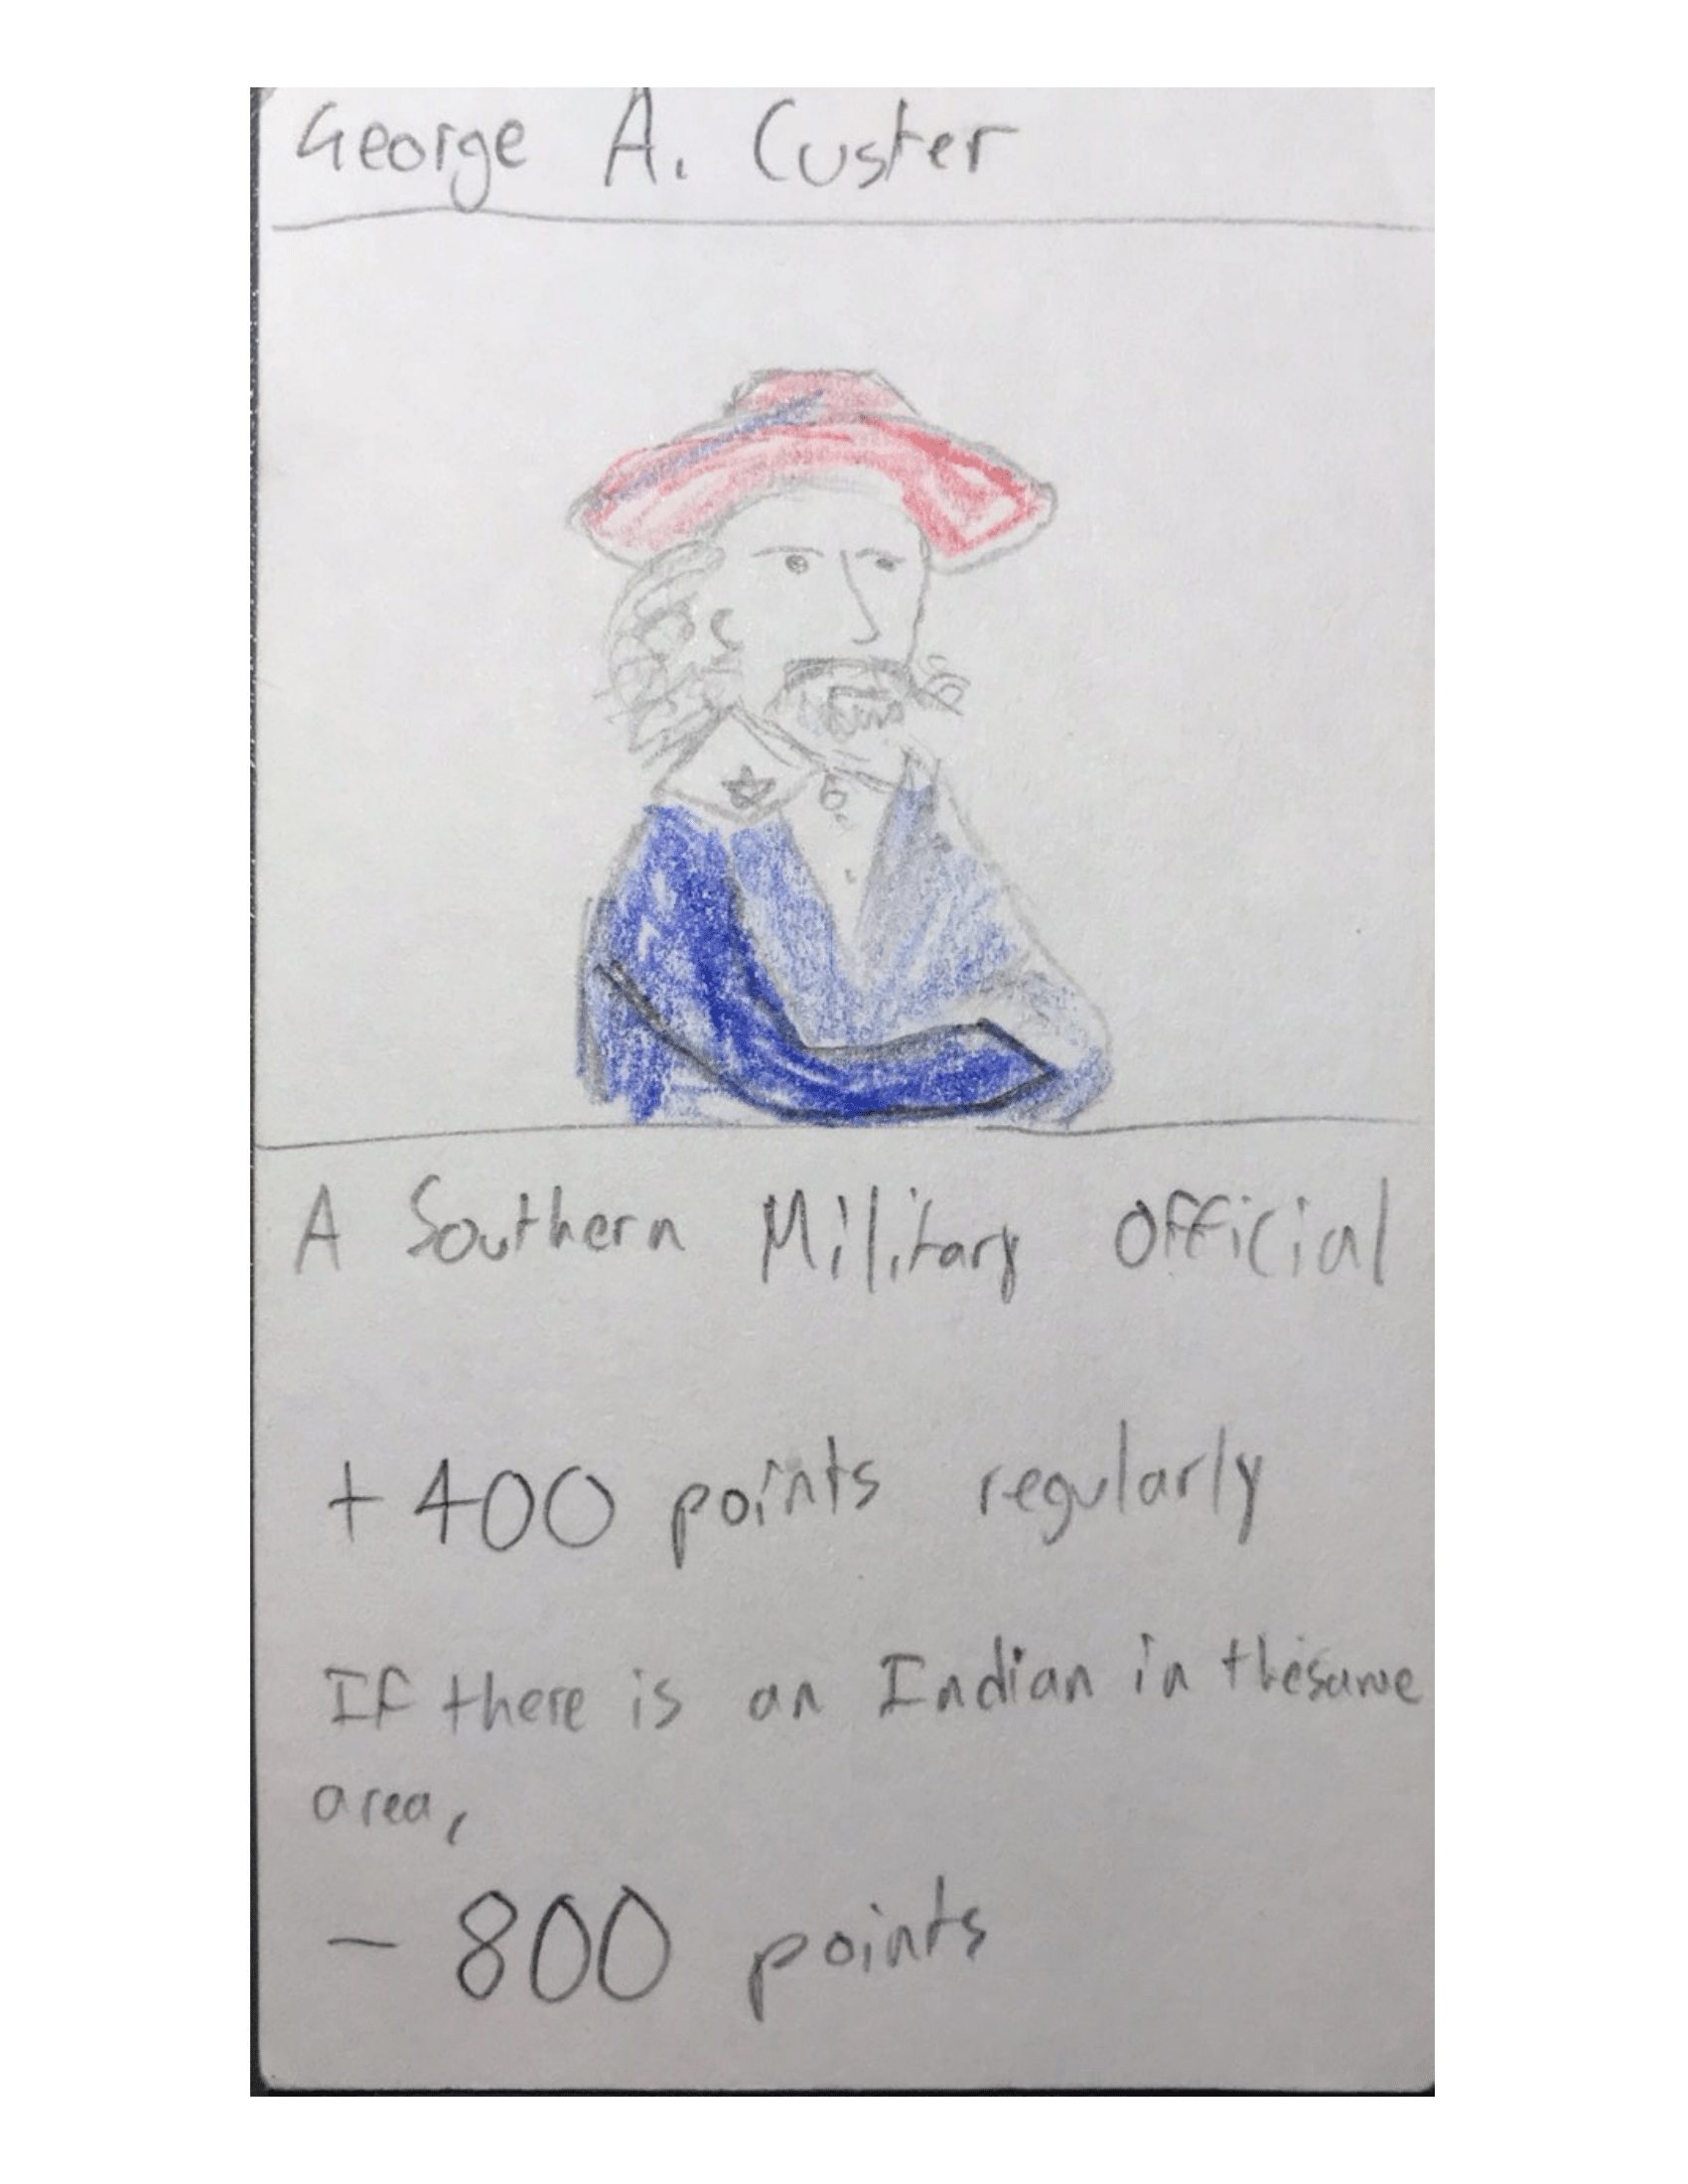 George A. Custer
A Southern Military Official
+400 points regularly
If there is an Indian in the same
area,
- 800 points